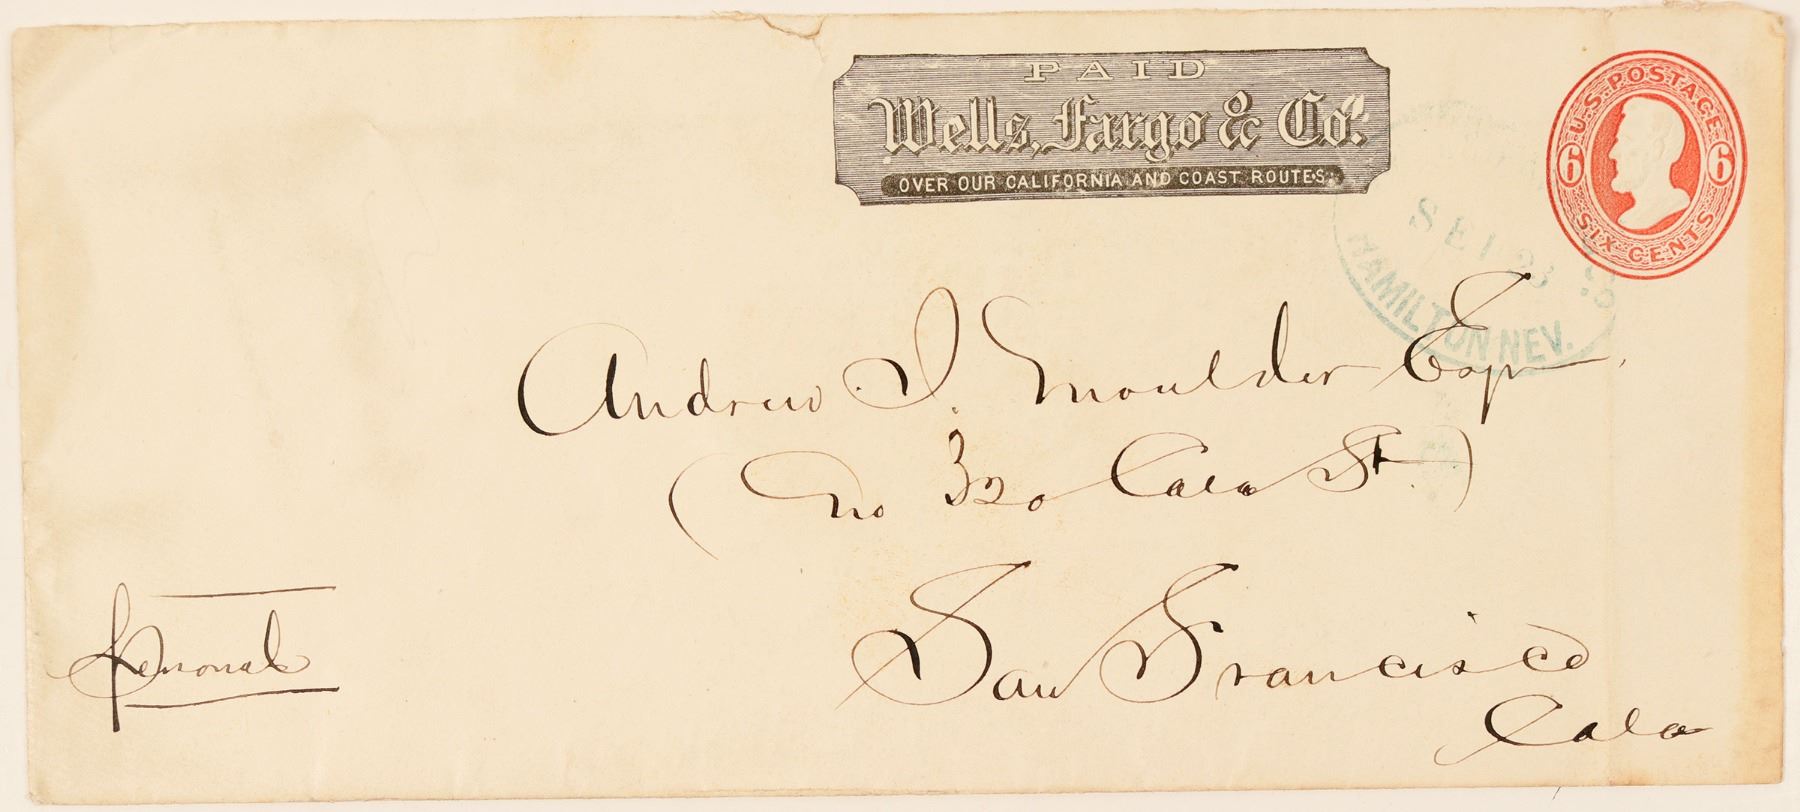 PAID
Wells, Fargo & Co.
OVER OUR CALIFORNIA AND COAST ROUTES.
U.S. POSTAGE
6 6
SIX CENTS
SEP 23
HAMILTON NEV.
Andrew J. Moulder Esqr
(No 320 Cala St.)
San Francisco
Cala
Personal